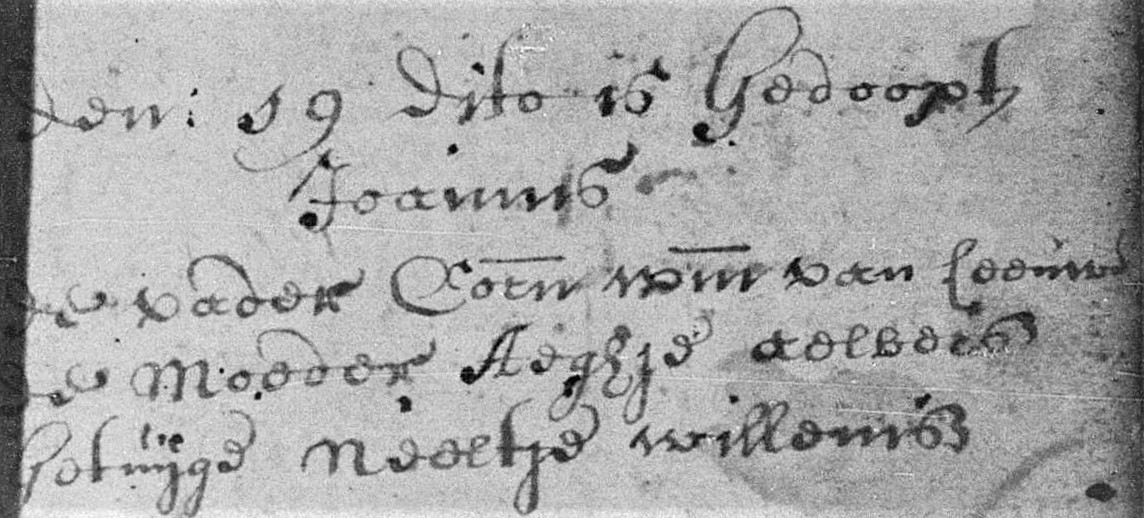 den: 19 dito is Gedoopt
Joannis
de vader Corn wm van Leeuwe
de Moeder Aeghje aelbers
getuijge Neeltje willems